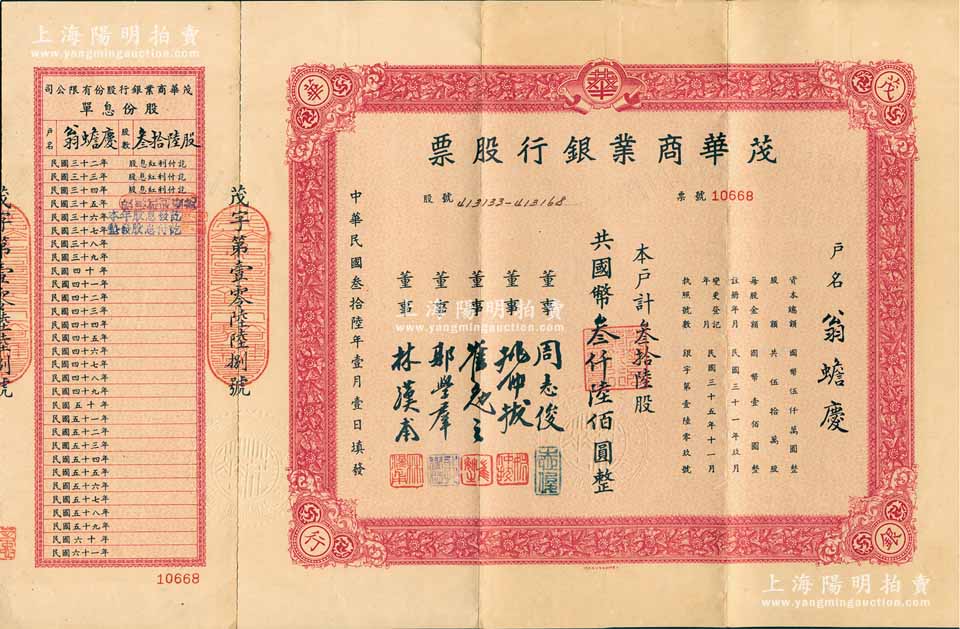 上海陽明拍賣
www.yangmingauction.com
茂華商業銀行股份有限公司
股份息單
戶名
翁蟾慶
股數
叁拾陸股
民國三十二年 股息紅利付訖
民國三十三年 股息紅利付訖
民國三十四年 股息紅利付訖
民國三十五年
民國三十六年
民國三十七年
民國三十八年
民國三十九年
民國四十年
民國四十一年
民國四十二年
民國四十三年
民國四十四年
民國四十五年
民國四十六年
民國四十七年
民國四十八年
民國四十九年
民國五十年
民國五十一年
民國五十二年
民國五十三年
民國五十四年
民國五十五年
民國五十六年
民國五十七年
民國五十八年
民國五十九年
民國六十年
民國六十一年
10668
茂字第壹零陸陸捌號
華
華
茂
行
銀
茂華商業銀行股票
票號 10668
股號 413133-413168
戶名 翁蟾慶
資本總額 國幣伍仟萬圓整
股額 共伍拾萬股
每股金額 國幣壹佰圓整
註冊年月 民國三十一年玖月
變更登記年月 民國三十五年十一月
執照號數 銀字第壹陸零玖號
本戶計叁拾陸股
共國幣叁仟陸佰圓整
董事 周志俊
董事 姚仲拔
董事
董事 鄢學羣
董事 林漢甫
中華民國叁拾陸年壹月壹日填發
上海陽明拍賣
www.yangmingauction.com
上海陽明拍賣
www.yangmingauction.com